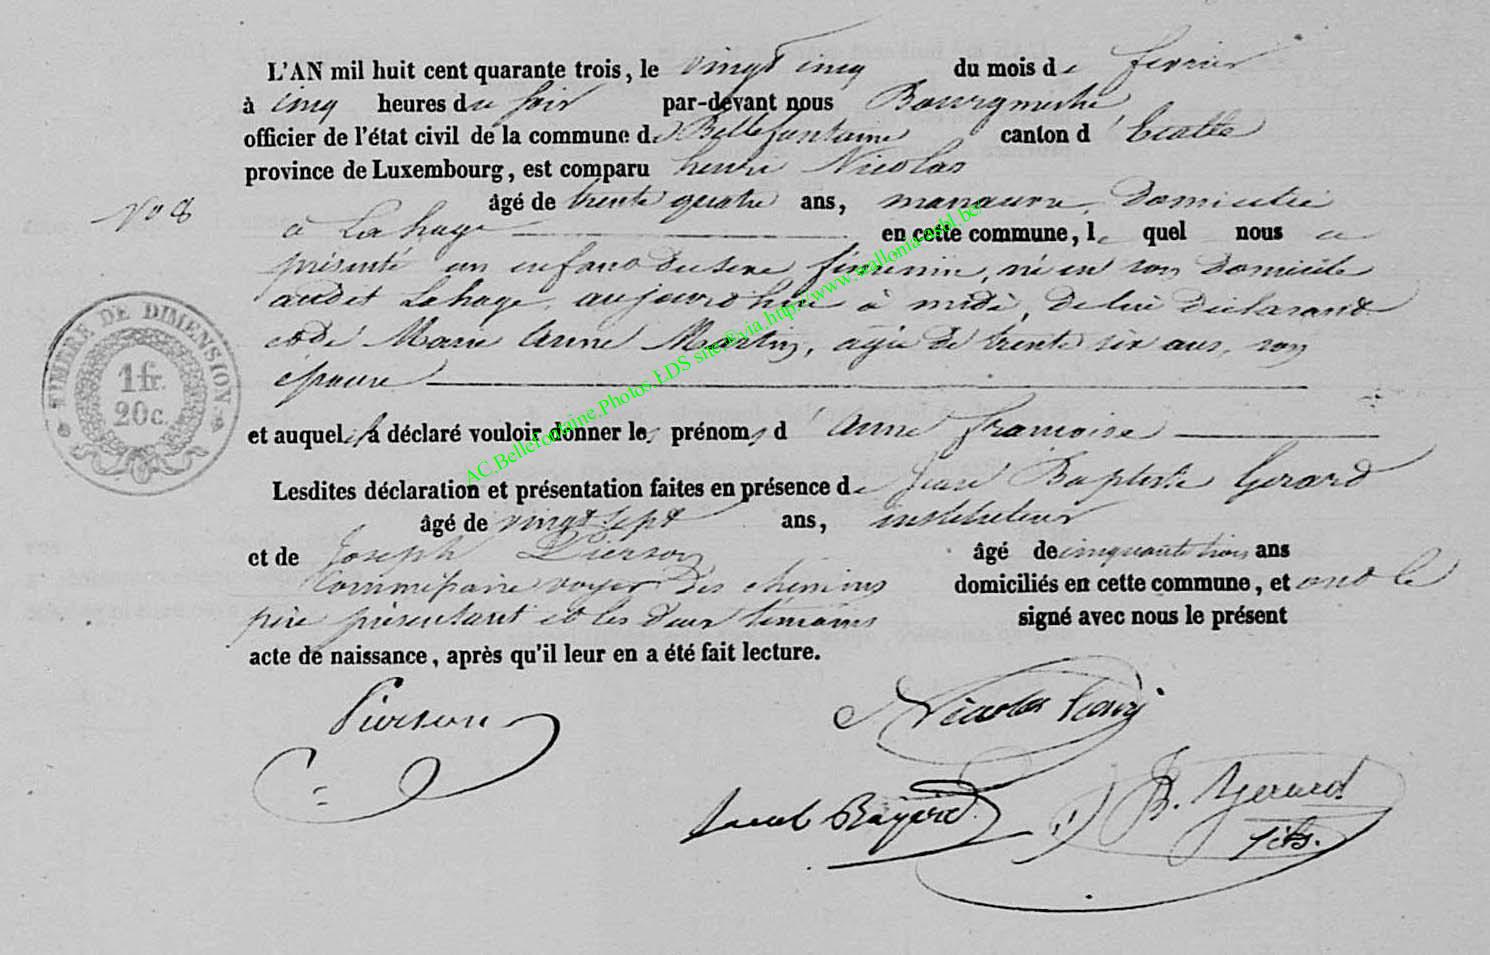 L'AN mil huit cent quarante trois, le vingt cinq du mois de fevrier
à cinq heures du soir par-devant nous Bourgmestre
officier de l'état civil de la commune de Bellefontaine canton d'Etalle
province de Luxembourg, est comparu henri Nicolas
âgé de trente quatre ans, manœuvre, Domicilié
No 8
à Lahage en cette commune, le quel nous a
présenté un enfant du sexe féminin, né en son Domicile
audit Lahage, aujourd'hui à midi, de lui Déclarant
et de Marie Anne Martin, agée de trente six ans, son
épouse
et auquel il a déclaré vouloir donner les prénoms d'Anne françoise
Lesdites déclaration et présentation faites en présence de Jean Baptiste Gerard
âgé de vingt sept ans, instituteur
et de Joseph Pierson âgé de cinquante trois ans
Commissaire voyer des chemins domiciliés en cette commune, et ont le
père présentant et les deux témoins signé avec nous le présent
acte de naissance, après qu'il leur en a été fait lecture.
TIMBRE DE DIMENSION
1 fr.
20 c.
Pierson
Nicolas henri
Jacob Bayard
B. Gerard
fils.
AC.Bellefontaine.Photos.LDS site@via.http://www.wallonia-asbl.be/